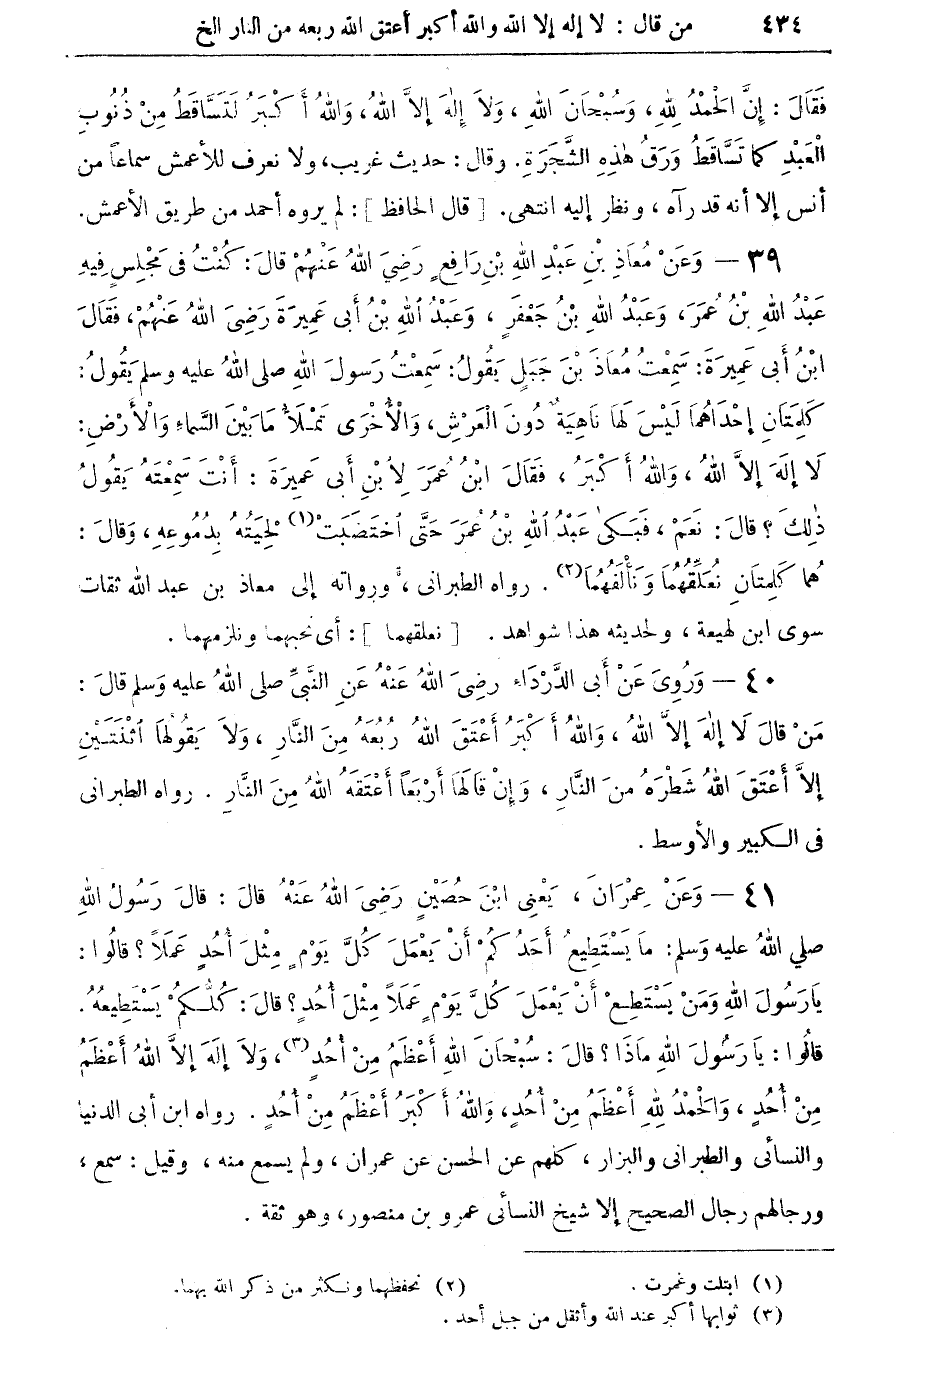 ٤٣٤ من قال : لا إله إلا الله والله أكبر أعتق الله ربعه من النار الخ
فَقَالَ : إِنَّ الْحَمْدُ لِلهِ ، وَسُبْحَانَ اللهِ ، وَلاَ إِلٰهَ إِلاَّ اللهُ ، وَاللهُ أَكْبَرُ لَتَسَّاقَطُ مِنْ ذُنُوبِ
الْعَبْدِ كما تَسَّاقَطُ وَرَقُ هٰذِهِ الشَّجَرَةِ . وقال : حديث غريب ، ولا نعرف للأعمش سماعاً من
أنس إلا أنه قد رآه ، ونظر إليه انتهى . [ قال الحافظ ] : لم يروه أحمد من طريق الأعمش .
٣٩ — وَعَنْ مُعَاذِ بْنِ عَبْدِ اللهِ بْنِ رَافِعٍ رَضِيَ اللهُ عَنْهُمْ قالَ : كُنْتُ فى مَجْلِسٍ فِيهِ
عَبْدُ اللهِ بْنُ عُمَرَ ، وَعَبْدُ اللهِ بْنُ جَعْفَرٍ ، وَعَبْدُ اللهِ بْنُ أَبى عَمِيرَةَ رَضِىَ اللهُ عَنْهُمْ ، فَقَالَ
ابْنُ أَبى عَمِيرَةَ : سَمِعْتُ مُعَاذَ بْنَ جَبَلٍ يَقُولُ : سَمِعْتُ رَسولَ اللهِ صلى اللهُ عليه وسلم يَقُولُ :
كَلِمَتَانِ إِحْدَاهُمَا لَيْسَ لَهَا نَاهِيَةٌ دُونَ الْعَرْشِ ، وَالْأُخْرَى تَمْلَأُ مَا بَيْنَ السَّماءِ وَالْأَرْضِ :
لَا إِلَهَ إِلاَّ اللهُ ، وَاللهُ أَكْبَرُ ، فَقَالَ ابْنُ عُمَرَ لِابْنِ أَبى عَمِيرَةَ : أَنْتَ سَمِعْتَهُ يَقُولُ
ذٰلِكَ ؟ قالَ : نَعَمْ ، فَبَكَى عَبْدُ اللهِ بْنُ عُمَرَ حَتَّى اخْتَضَبَتْ (١) لِحْيَتُهُ بِدُمُوعِهِ ، وَقالَ :
هُما كَلِمتَانِ نُعَلِّقُهُمَا وَنَأْلَفُهُمَا (٢) . رواه الطبرانى ، ورواته إلى معاذ بن عبد الله ثقات
سوى ابن لهيعة ، ولحديثه هذا شواهد . [ نعلقهما ] : أى نحبهما ونلزمهما .
٤٠ — وَرُوِىَ عَنْ أَبى الدَّرْدَاءِ رضِىَ اللهُ عَنْهُ عَنِ النَّبىِّ صلى اللهُ عليه وَسلم قالَ :
مَنْ قالَ لَا إِلٰهَ إِلاَّ اللهُ ، وَاللهُ أَكْبَرُ أَعْتَقَ اللهُ رُبُعَهُ مِنَ النَّارِ ، وَلاَ يَقُولُهَا اثْنَتَيْنِ
إِلاَّ أَعْتَقَ اللهُ شَطْرَهُ منَ النَّارِ ، وَإِنْ قالَهَا أَرْبَعاً أَعْتَقَهُ اللهُ مِنَ النَّارِ . رواه الطبرانى
فى الكبير والأوسط .
٤١ — وَعَنْ عِمْرَانَ ، يَعْنِى ابْنَ حُصَيْنٍ رَضِىَ اللهُ عَنْهُ قالَ : قالَ رَسُولُ اللهِ
صلي اللهُ عليه وَسلم : مَا يَسْتَطِيعُ أَحَدُكُمْ أَنْ يَعْمَلَ كُلَّ يَوْمٍ مِثْلَ أُحُدٍ عَمَلاً ؟ قالُوا :
يَا رَسُولَ اللهِ وَمَنْ يَسْتَطِعْ أَنْ يَعْمَلَ كُلَّ يَوْمٍ عَمَلاً مِثْلَ أُحُدٍ ؟ قالَ : كُلُّكُمْ يَسْتَطِيعُهُ .
قالُوا : يَا رَسُولَ اللهِ مَاذَا ؟ قالَ : سُبْحَانَ اللهِ أَعْظَمُ مِنْ أُحُدٍ (٣) ، وَلاَ إِلَهَ إِلاَّ اللهُ أَعْظَمُ
مِنْ أُحُدٍ ، وَالحَمْدُ لِلهِ أَعْظَمُ مِنْ أُحُدٍ ، وَاللهُ أَكْبَرُ أَعْظَمُ مِنْ أُحُدٍ . رواه ابن أبى الدنيا
والنسأئى والطبرانى والبزار ، كلهم عن الحسن عن عمران ، ولم يسمع منه ، وقيل : سمع ،
ورجالهم رجال الصحيح إلا شيخ النسأئى عمرو بن منصور ، وهو ثقة .
(١) ابتلت وغمرت . (٢) نحفظهما ونكثر من ذكر الله بهما .
(٣) ثوابها أكبر عند الله وأثقل من جبل أحد .